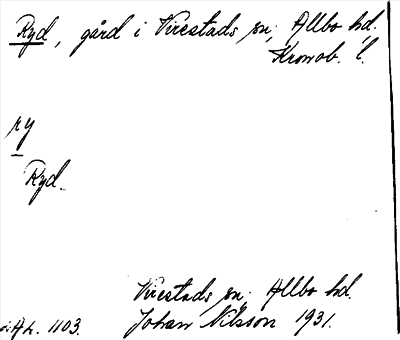 Ryd, gård i Virestads sn, Allbo hd,
Kronob. l.
ry
Ryd.
Virestads sn, Allbo hd.
AL. 1103. Johan Nilsson 1931.